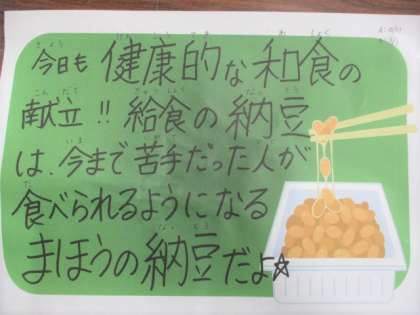 今日も健康的な和食の
献立!!給食の納豆
は、今まで苦手だった人が
食べられるようになる
まほうの納豆だよ☆